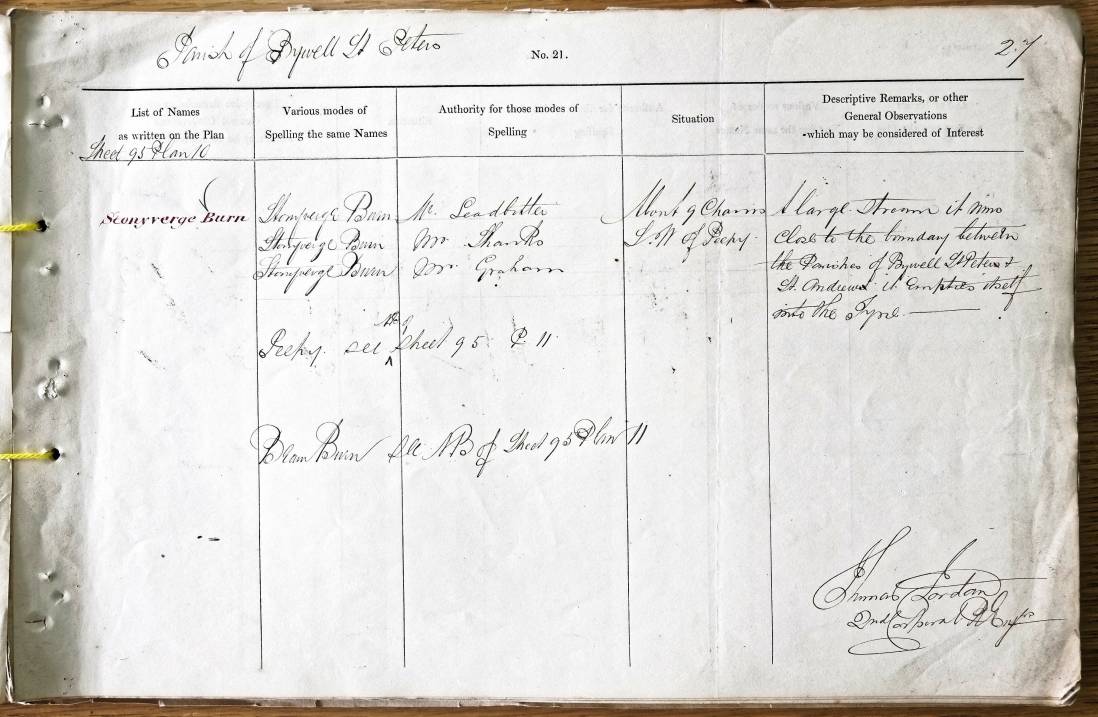 Parish of Bywell St Peters
No. 21.
27
List of Names
as written on the Plan
Various modes of
Spelling the same Names
Authority for those modes of
Spelling
Situation
Descriptive Remarks, or other
General Observations
which may be considered of Interest
Sheet 95 Plan 10
Stonyverge Burn
Stonyverge Burn Mr. Leadbitter
Stonyverge Burn Mr Shanks
Stonyverge Burn Mr Graham
About 9 Chains
S.W of Peepy.
A large stream it runs
close to the boundary between
the Parishes of Bywell St Peters &
St. Andrews it Empties itself
into the Tyne
Peepy. see Sheet 95 P 11
Beam Burn see NB of Sheet 95 Plan 11
Thomas Jordan
2nd Corporal R Engrs